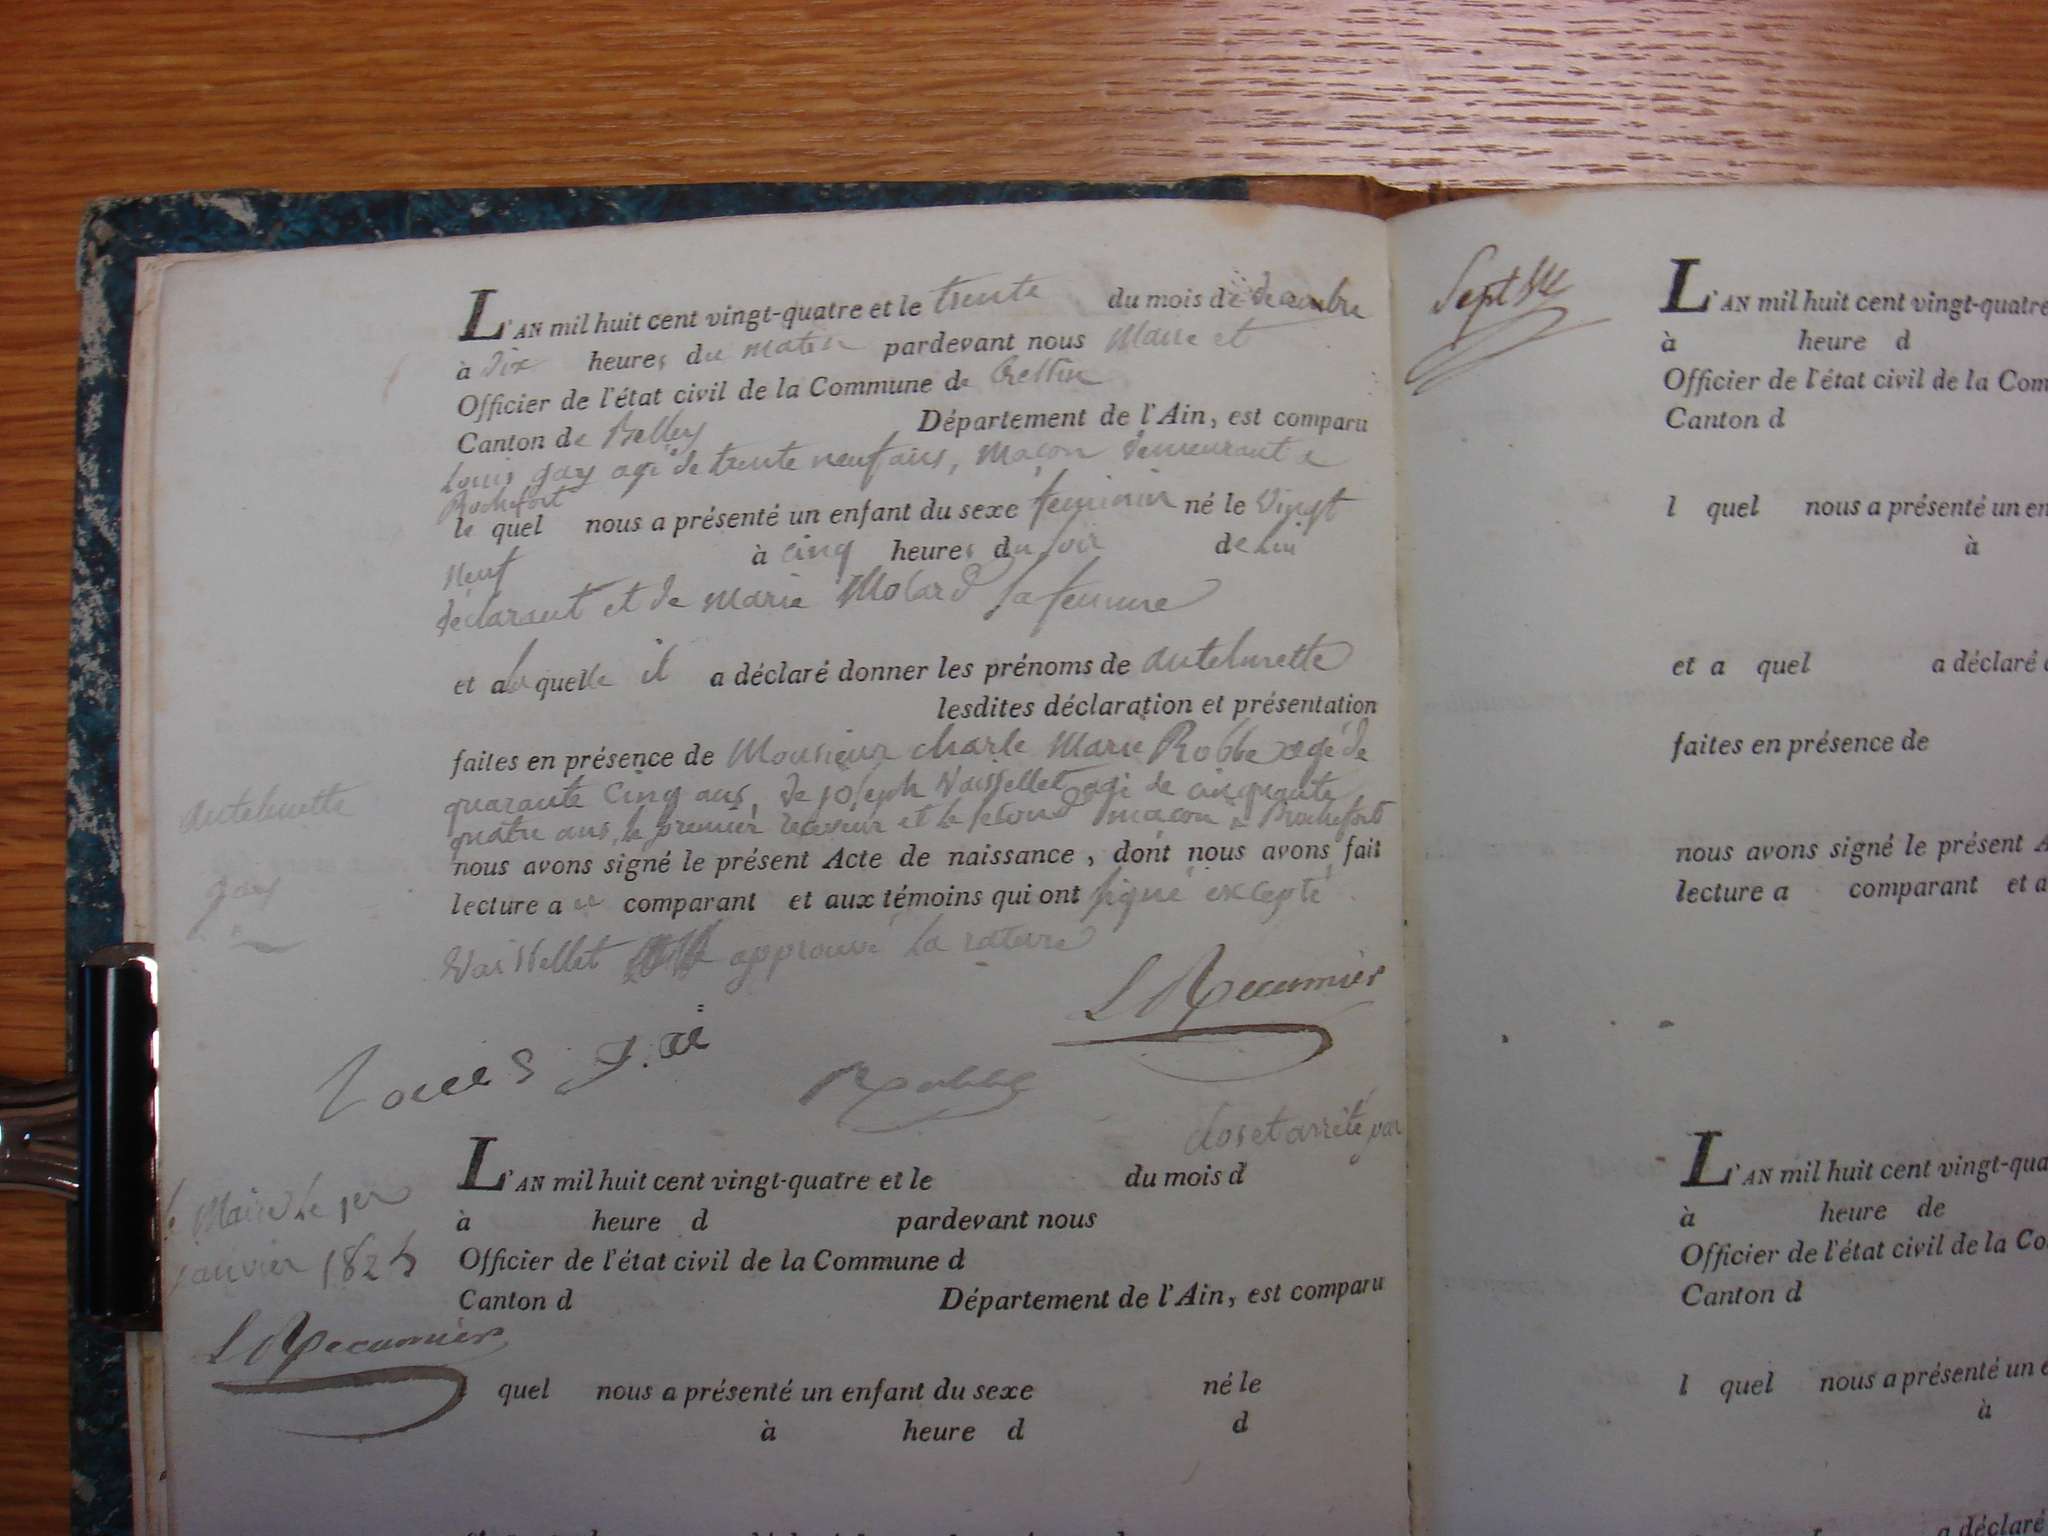 L'AN mil huit cent vingt-quatre et le trente du mois de decembre
à dix heures du matin pardevant nous Maire et
Officier de l'état civil de la Commune de Cressin
Canton de Belley Département de l'Ain, est comparu
Louis gay agé de trente neuf ans, maçon demeurant a
Rochefort
le quel nous a présenté un enfant du sexe feminin né le vingt
neuf à cinq heures du soir de lui
déclarant et de marie Molard sa femme
et a la quelle il a déclaré donner les prénoms de antelmette
lesdites déclaration et présentation
faites en présence de Monsieur charle Marie Robbe agé de
quarante cinq ans, de joseph Vaissellet agé de cinquante
quatre ans, le premier receveur et le second maçon a Rochefort
nous avons signé le présent Acte de naissance, dont nous avons fait
lecture a comparant et aux témoins qui ont signé excepté
Vaissellet approuvé la rature
antelmette
gay
L Recamier
Louis
Robbe
clos et arrêté par
le Maire le 1er
janvier 1825
L Recamier
L'AN mil huit cent vingt-quatre et le du mois d
à heure d pardevant nous
Officier de l'état civil de la Commune d
Canton d Département de l'Ain, est comparu
quel nous a présenté un enfant du sexe né le
à heure d d
L'AN mil huit cent vingt-quatre
à heure d
Officier de l'état civil de la Com
Canton d
l quel nous a présenté un en
à
et a quel a déclaré
faites en présence de
nous avons signé le présent A
lecture a comparant et a
L'AN mil huit cent vingt-qua
à heure de
Officier de l'état civil de la Co
Canton d
l quel nous a présenté un e
à
a déclaré